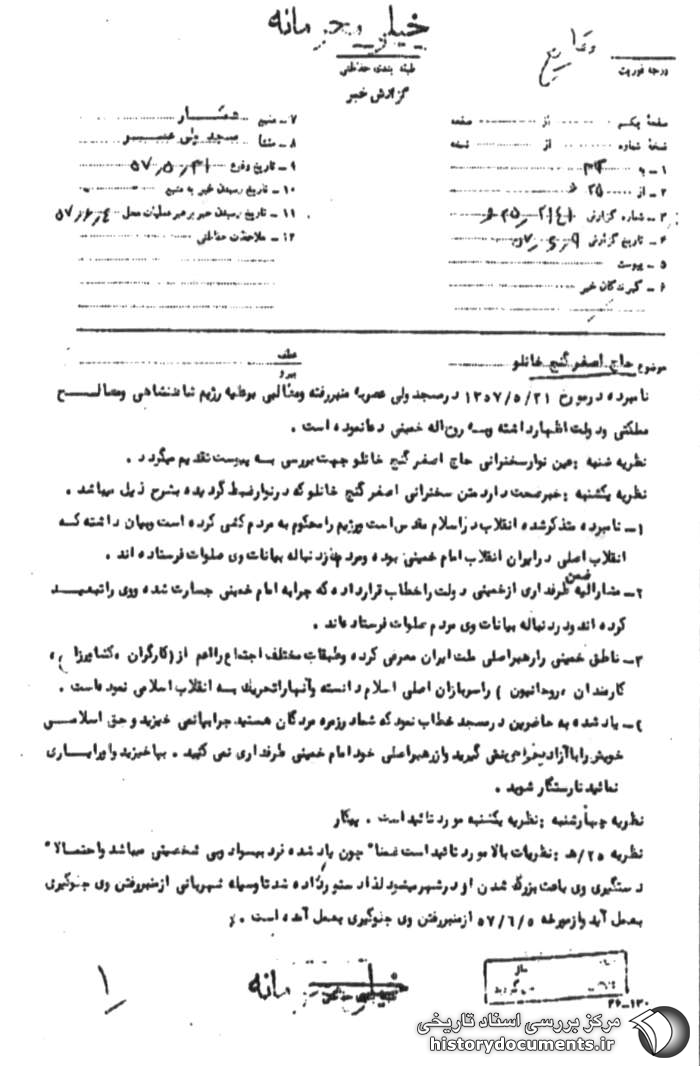 خیلی محرمانه
طبقه بندی حفاظتی
گزارش خبر
درجه فوریت
صفحه یکم از صفحه
نسخه شماره از نسخه
۱ـ به
۲ـ از ۲۵ هـ
۳ـ شماره گزارش
۴ـ تاریخ گزارش ۵۷٫۶٫۹
۵ـ پیوست
۶ـ گیرندگان خبر
۷ـ منبع
۸ـ منشأ مسجد ولی عصر
۹ـ تاریخ وقوع ۵۷٫۵٫۳۱
۱۰ـ تاریخ رسیدن خبر به منبع
۱۱ـ تاریخ رسیدن خبر به رهبر عملیات محل ۵۷٫۶٫۴
۱۲ـ ملاحظات حفاظتی
موضوع حاج اصغر گنج خانلو
عطف
پیرو
نامبرده درمورخ ۱۳۵۷/۵/۳۱ درمسجد ولی عصربه منبررفته ومطالبی برعلیه رژیم شاهنشاهی ومصالح
مملکتی ودولت اظهارداشته وبه روح اله خمینی دعانموده است .
نظریه شنبه : عین نوارسخنرانی حاج اصغر گنج خانلو جهت بررسی به پیوست تقدیم میگردد .
نظریه یکشنبه : خبرصحت دارد متن سخنرانی اصغر گنج خانلو که درنوارضبط گردیده بشرح ذیل میباشد .
۱ـ نامبرده متذکرشده انقلاب دراسلام مقدس است ورژیم رامحکوم به مردم کشی کرده است وبیان داشته که
انقلاب اصلی درایران انقلاب امام خمینی بوده ومردم نیزدنباله بیانات وی صلوات فرستاده اند .
۲ـ مشارالیه ضمن طرفداری ازخمینی دولت راخطاب قرارداده که چرابه امام خمینی جسارت شده ووی راتبعید
کرده اند ودردنباله بیانات وی مردم صلوات فرستاده‌اند .
۳ـ ناطق خمینی رارهبراصلی ملت ایران معرفی کرده وطبقات مختلف اجتماع رااعم از (کارگران ، کشاورزان ،
کارمندان ، روحانیون ) راسربازان اصلی اسلام دانسته وآنهاراتحریک به انقلاب اسلامی نموده‌است .
۴ـ یاد شده به حاضرین درمسجد خطاب نمود که شمادرزمره مردگان هستید چرابپانمی خیزید وحق اسلامی
خویش راباآزادیخواهی پس نمی گیرید وازرهبراصلی خود امام خمینی طرفداری نمی کنید . بپاخیزید واورایاری
نمائید تارستگار شوید .
نظریه چهارشنبه : نظریه یکشنبه مورد تائیداست . پیکار
نظریه ۲۵/هـ : نظریات بالا مورد تائید است ضمناً چون یاد شده فرد بیسواد وبی شخصیتی میباشد واحتمالاً
دستگیری وی باعث بزرگ شدن او درشهر میشود لذا دستورداده شد تاوسیله شهربانی ازمنبررفتن وی جلوگیری
بعمل آید وازمورخه ۵۷/۶/۵ ازمنبررفتن وی جلوگیری بعمل آمده است .
خیلی محرمانه
۱
۳۶-۱۳۰
مرکز بررسی اسناد تاریخی
historydocuments.ir